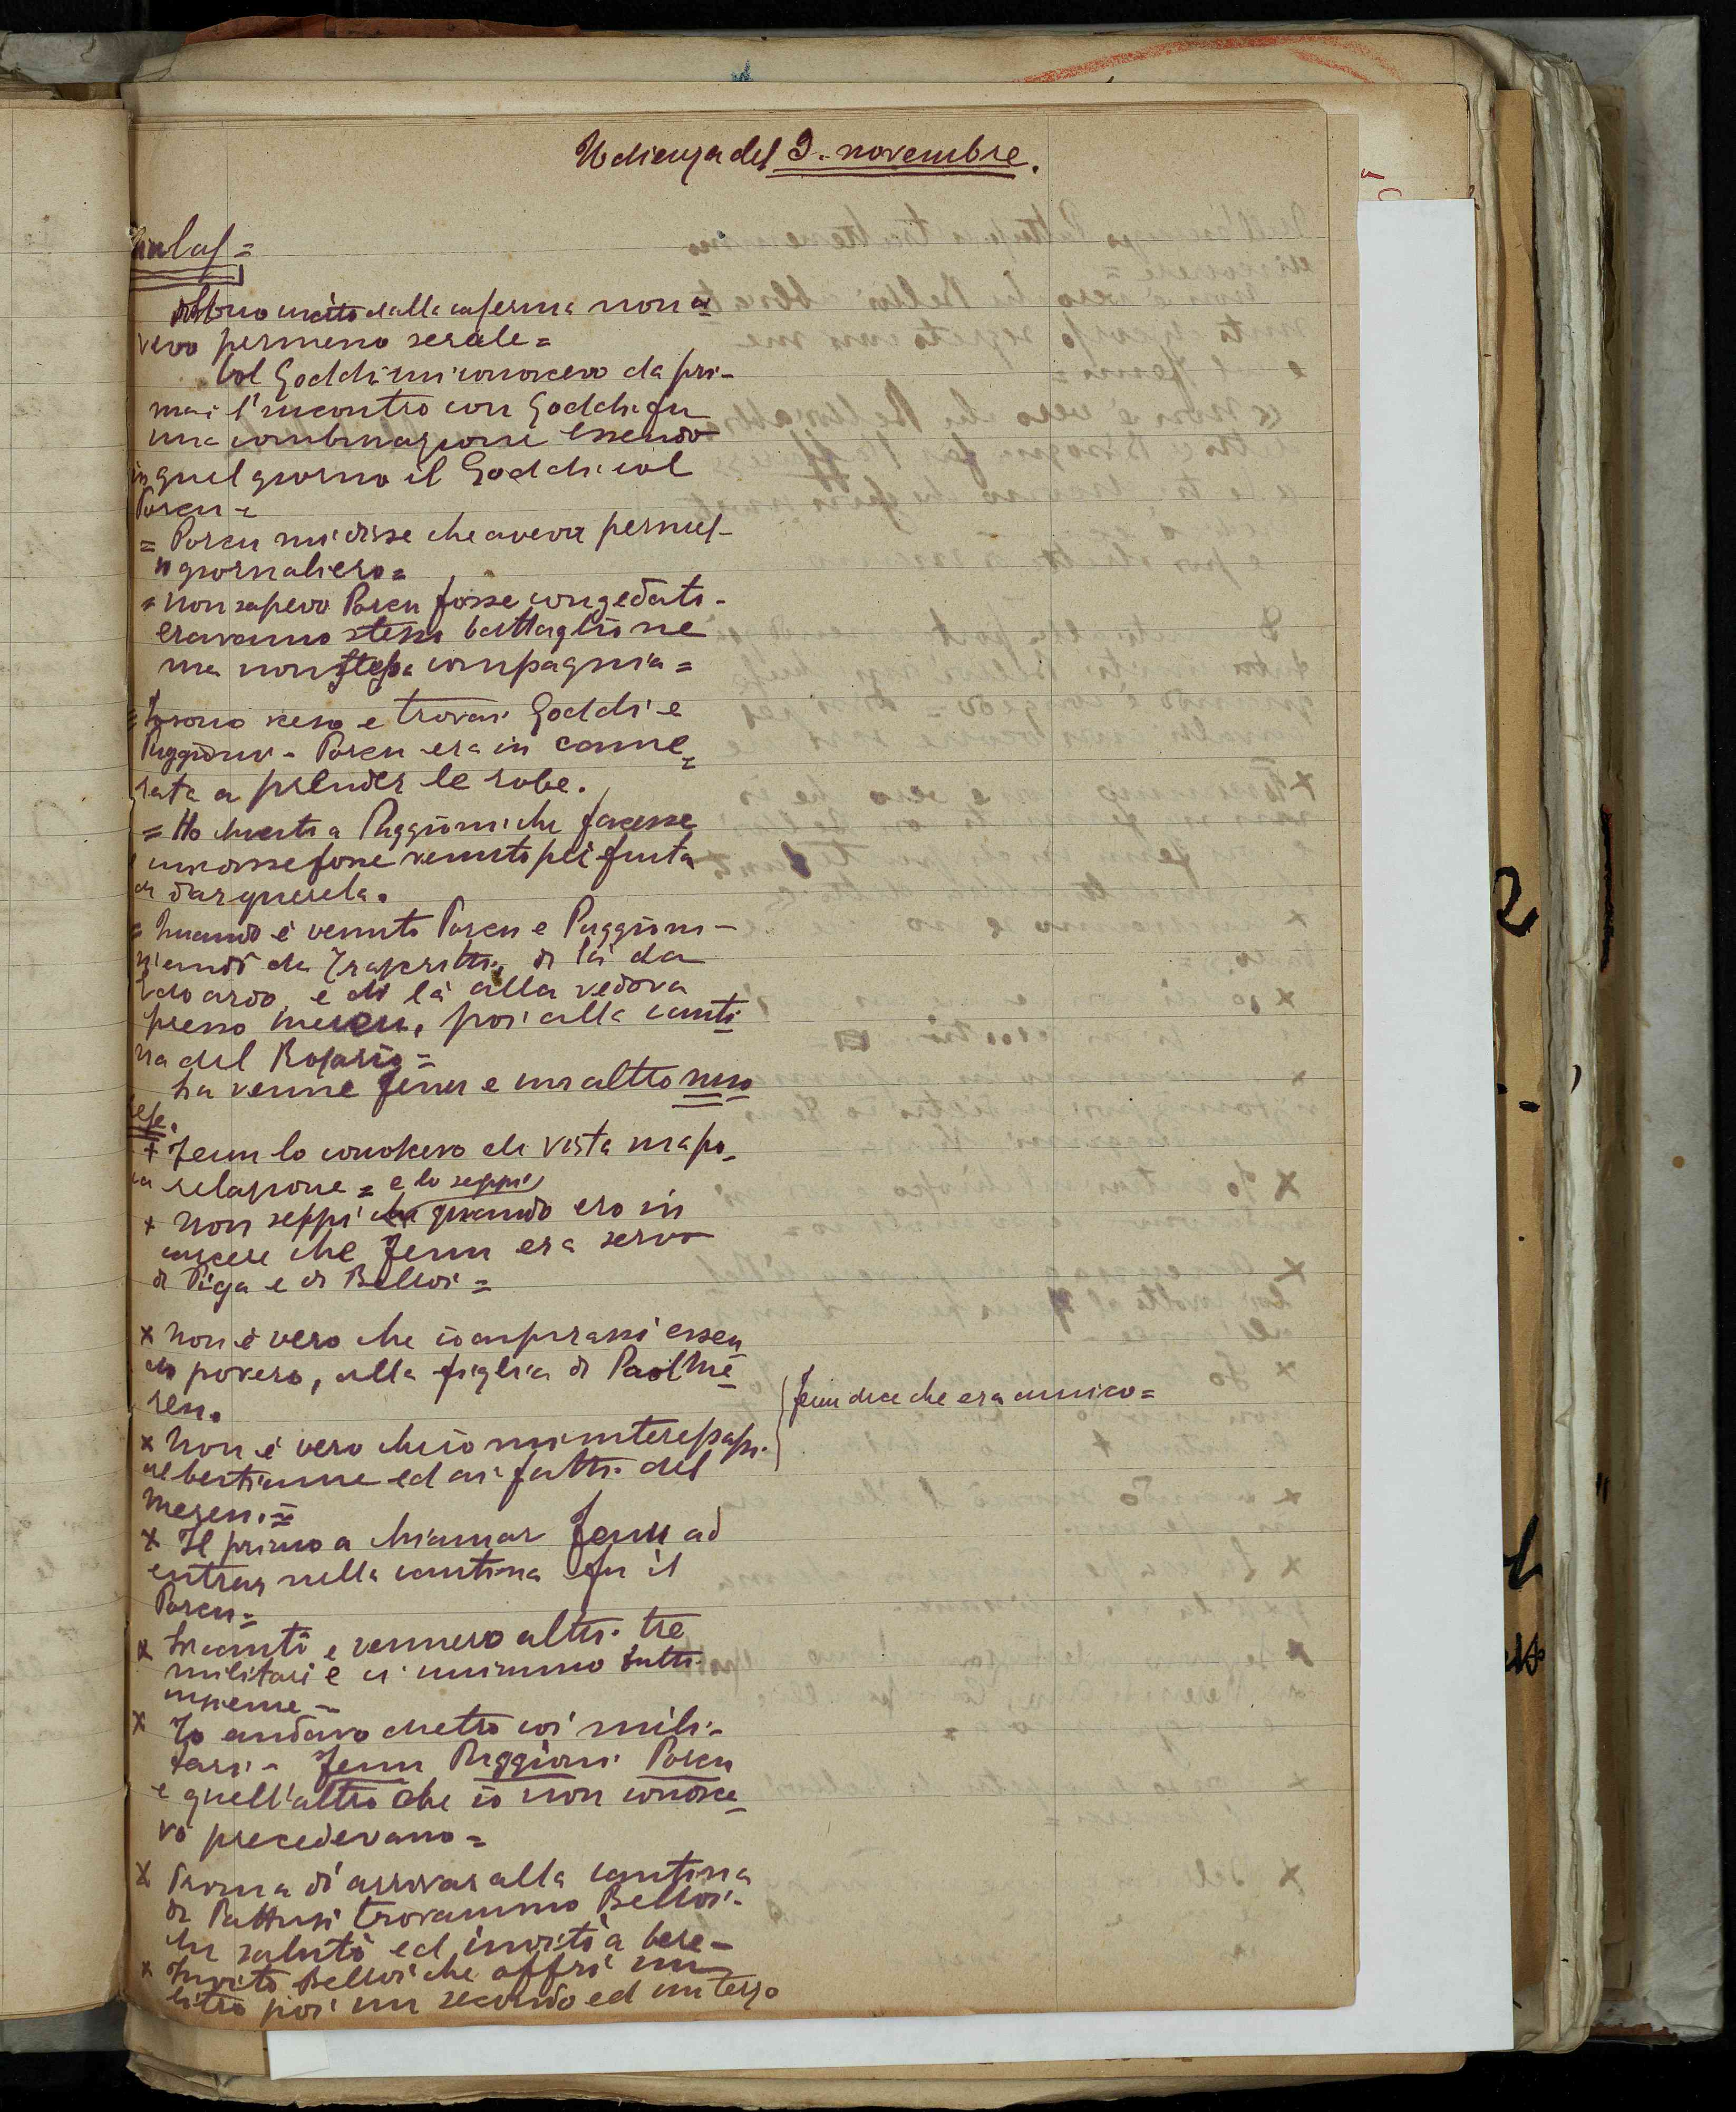 Udienza del 9. novembre.
Abbuo uscito dalla caserma non a
vevo permeno serale =
Col Goddi mi conoscevo da pri-
ma i l'incontro con Goddi fu
una combinazione essendo
in quel giorno il Goddi col
Porcu =
= Porcu mi disse che aveva permes-
so giornaliero =
= Non sapevo Porcu fosse congedato -
eravamo stesso battaglione
ma non stessa compagnia =
sono sceso e trovai Goddi e
Puggioni - Porcu era in came=
rata a prender le robe.
= Ho chiesto a Puggioni che facesse
e mi disse fosse venuto per finta
di dar querela.
= Quando è venuto Porcu e Puggioni -
di là da
Edoardo, e di là alla vedova
presso Mereu, poi alla canti
na del Rosario =
La venne Jenu e un altro nuo
rese.
+ Jenu lo conoscevo di vista ma po-
ca relazione = e lo seppi
+ Non seppi che quando ero in
carcere che Jenu era servo
di Piga e di Bellosi =
x Non è vero che io aspirassi essen
do povero, alla figlia di Paol Me
reu.
x Non è vero che io mi interessassi
al bestiame ed ai fatti del
Mereu. =
Jenu dice che era amico =
x Il primo a chiamar Jenu ad
entrar nella cantina fu il
Porcu =
x e vennero altri tre
militari e ci unimmo tutti
insieme -
x Io andavo dietro coi mili-
tari - Jenu Puggioni Porcu
e quell'altro che io non conosce-
vo precedevano =
x Prima di arrivar alla cantina
di Pattusi trovammo Bellosi
che salutò ed invitò a bere -
x Invitò Bellosi che offrì un
litro poi un secondo ed un terzo